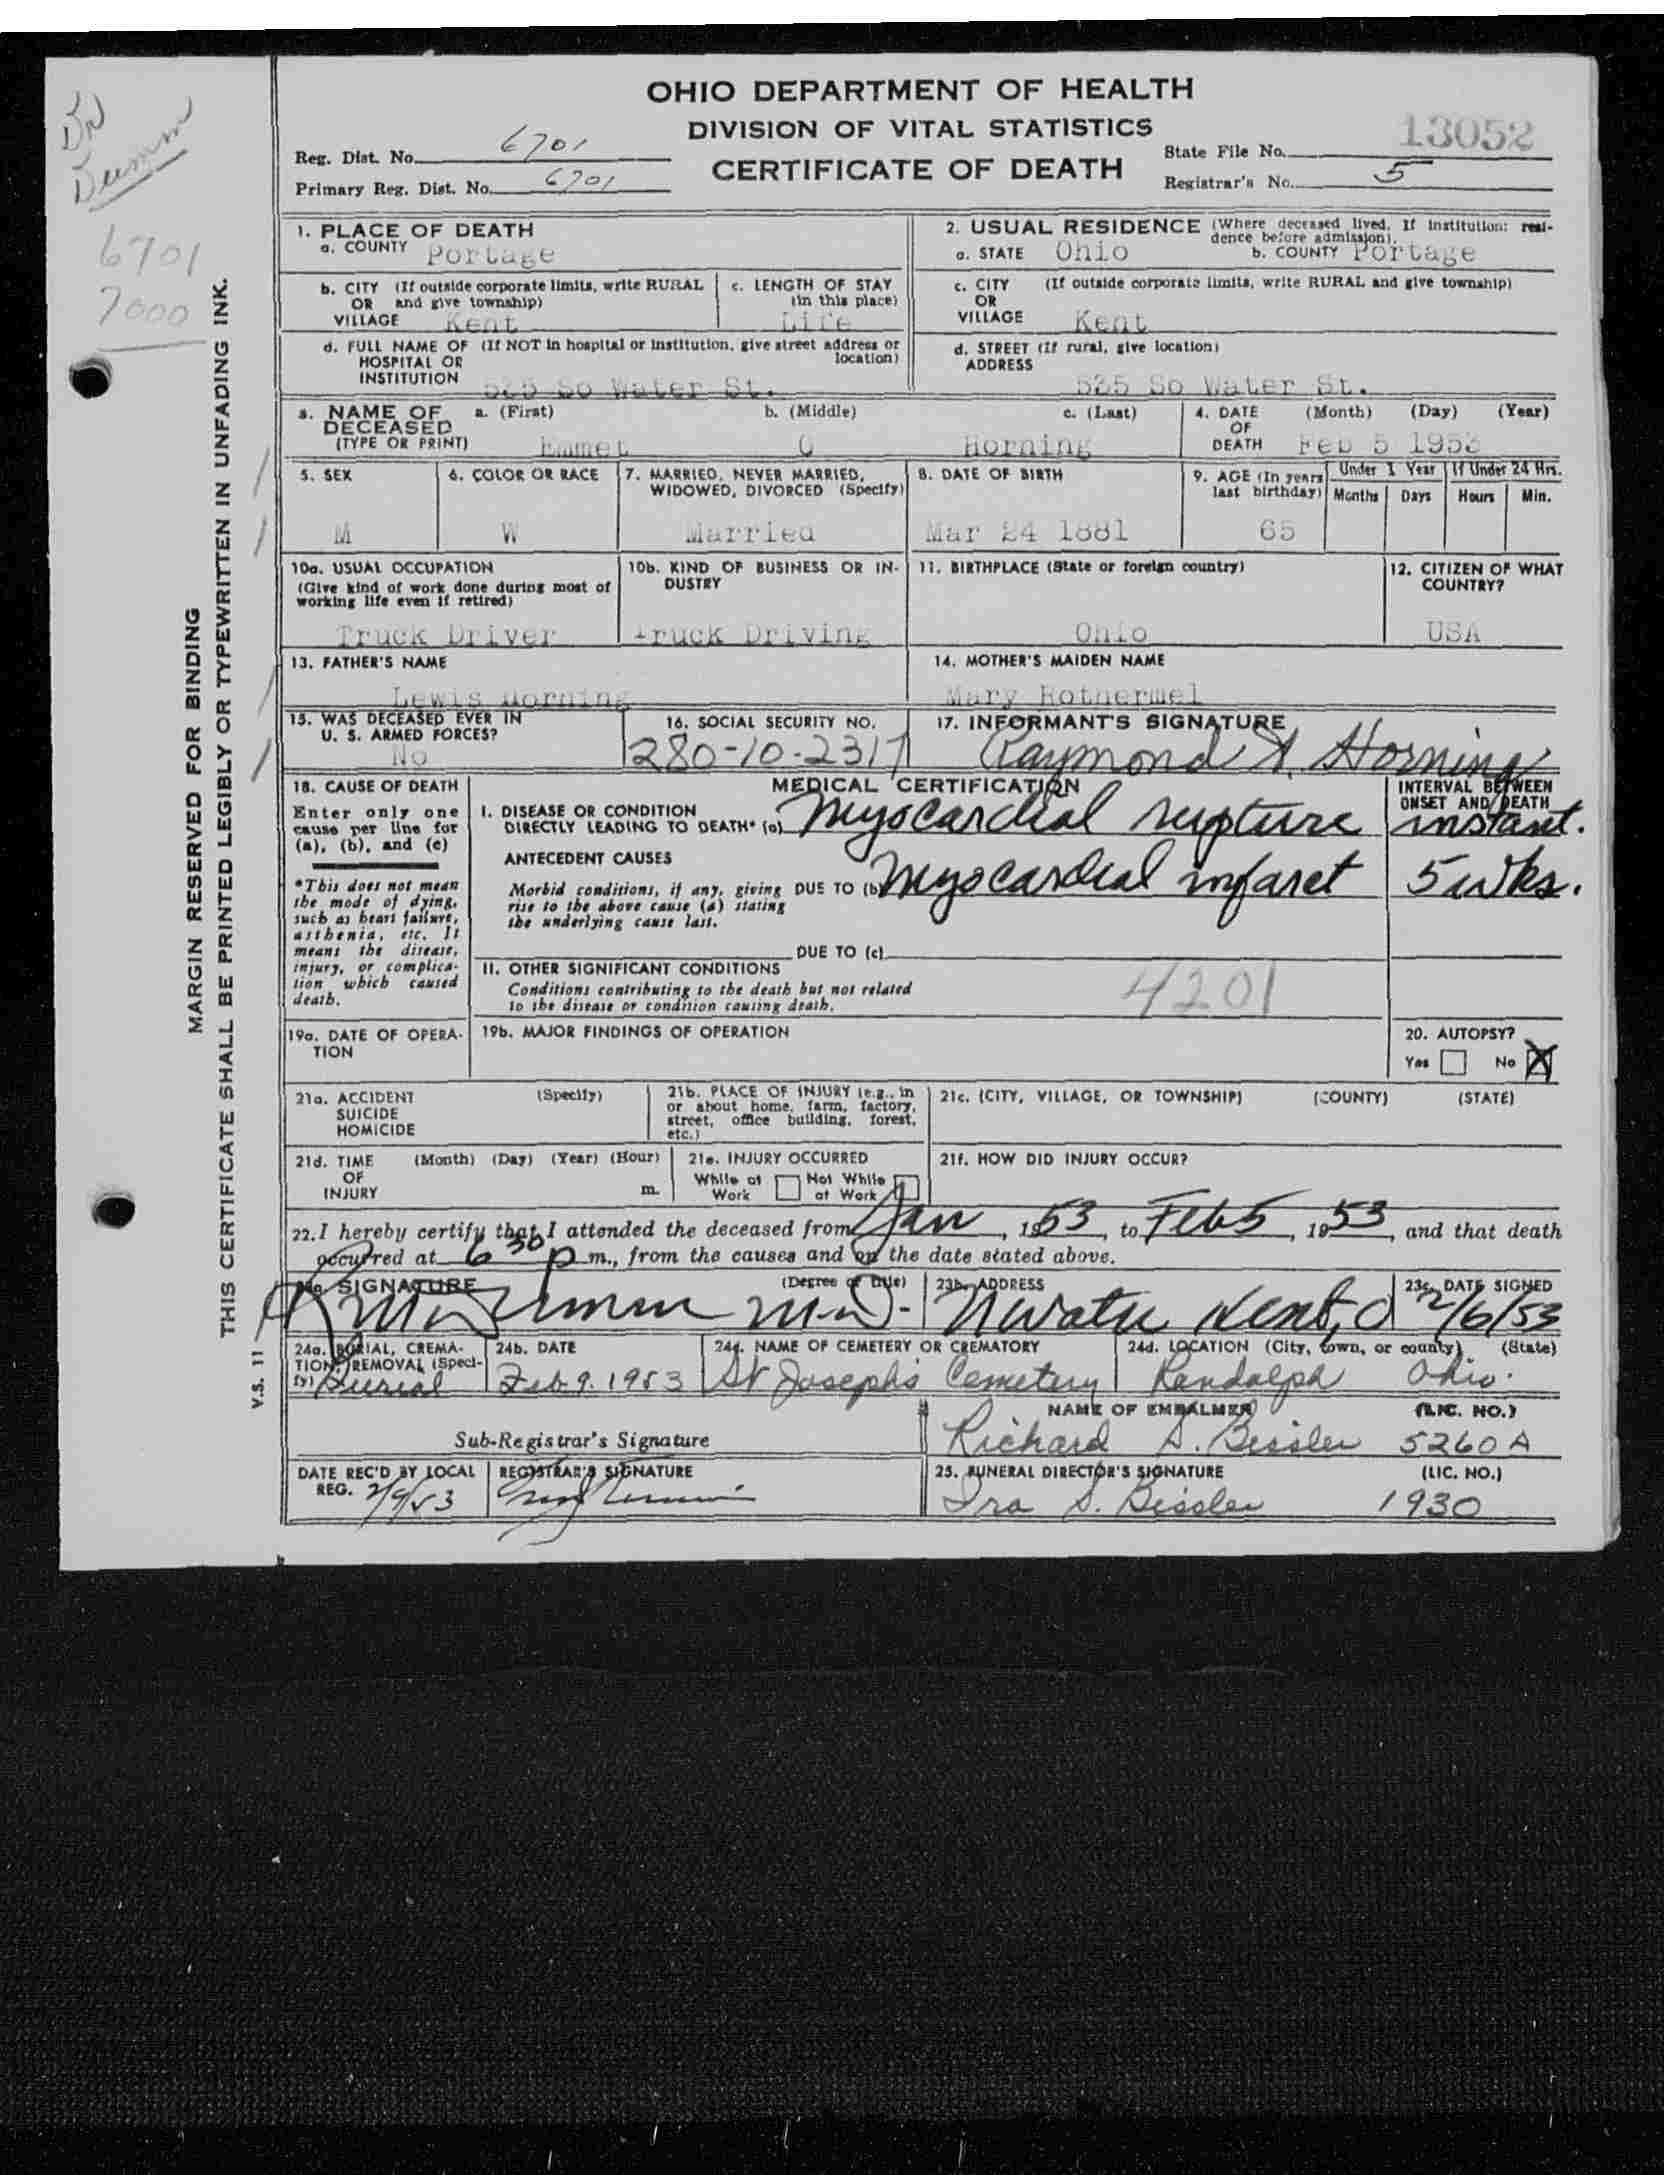 OHIO DEPARTMENT OF HEALTH
DIVISION OF VITAL STATISTICS
CERTIFICATE OF DEATH
Dr
Dumm
6701
7000
Reg. Dist. No. 6701
Primary Reg. Dist. No. 6701
State File No. 13052
Registrar's No. 5
MARGIN RESERVED FOR BINDING
THIS CERTIFICATE SHALL BE PRINTED LEGIBLY OR TYPEWRITTEN IN UNFADING INK.
V.S. 11
1. PLACE OF DEATH
a. COUNTY Portage
2. USUAL RESIDENCE (Where deceased lived. If institution: resi-
dence before admission).
a. STATE Ohio b. COUNTY Portage
b. CITY (If outside corporate limits, write RURAL
OR and give township)
VILLAGE Kent
c. LENGTH OF STAY
(in this place)
Life
c. CITY (If outside corporate limits, write RURAL and give township)
OR
VILLAGE Kent
d. FULL NAME OF (If NOT in hospital or institution, give street address or
HOSPITAL OR location)
INSTITUTION 525 So Water St.
d. STREET (If rural, give location)
ADDRESS
525 So Water St.
3. NAME OF a. (First) b. (Middle) c. (Last)
DECEASED
(TYPE OR PRINT) Emmet Horning
4. DATE (Month) (Day) (Year)
OF
DEATH Feb 5 1953
5. SEX
M
6. COLOR OR RACE
W
7. MARRIED, NEVER MARRIED,
WIDOWED, DIVORCED (Specify)
Married
8. DATE OF BIRTH
Mar 24 1881
9. AGE (In years
last birthday)
65
Under 1 Year
Months Days
If Under 24 Hrs.
Hours Min.
10a. USUAL OCCUPATION
(Give kind of work done during most of
working life even if retired)
Truck Driver
10b. KIND OF BUSINESS OR IN-
DUSTRY
Truck Driving
11. BIRTHPLACE (State or foreign country)
Ohio
12. CITIZEN OF WHAT
COUNTRY?
USA
13. FATHER'S NAME
Lewis Horning
14. MOTHER'S MAIDEN NAME
Mary Rothermel
15. WAS DECEASED EVER IN
U. S. ARMED FORCES?
No
16. SOCIAL SECURITY NO.
280-10-2317
17. INFORMANT'S SIGNATURE
Raymond A. Horning
18. CAUSE OF DEATH
Enter only one
cause per line for
(a), (b), and (c)
*This does not mean
the mode of dying,
such as heart failure,
asthenia, etc. It
means the disease,
injury, or complica-
tion which caused
death.
MEDICAL CERTIFICATION
INTERVAL BETWEEN
ONSET AND DEATH
I. DISEASE OR CONDITION
DIRECTLY LEADING TO DEATH* (a) Myocardial rupture instant.
ANTECEDENT CAUSES
Morbid conditions, if any, giving DUE TO (b) Myocardial infarct 5 wks.
rise to the above cause (a) stating
the underlying cause last.
DUE TO (c)
II. OTHER SIGNIFICANT CONDITIONS
Conditions contributing to the death but not related
to the disease or condition causing death.
4201
19a. DATE OF OPERA-
TION
19b. MAJOR FINDINGS OF OPERATION
20. AUTOPSY?
Yes No X
21a. ACCIDENT (Specify)
SUICIDE
HOMICIDE
21b. PLACE OF INJURY (e.g., in
or about home, farm, factory,
street, office building, forest,
etc.)
21c. (CITY, VILLAGE, OR TOWNSHIP) (COUNTY) (STATE)
21d. TIME (Month) (Day) (Year) (Hour)
OF
INJURY m.
21e. INJURY OCCURRED
While at Not While
Work at Work
21f. HOW DID INJURY OCCUR?
22. I hereby certify that I attended the deceased from Jan, 1953, to Feb 5, 1953, and that death
occurred at 6 30 p m., from the causes and on the date stated above.
SIGNATURE (Degree or title)
M.D.
23b. ADDRESS
N Water Kent, O
23c. DATE SIGNED
2/6/53
24a. BURIAL, CREMA-
TION, REMOVAL (Speci-
fy) Burial
24b. DATE
Feb. 9. 1953
24c. NAME OF CEMETERY OR CREMATORY
St Joseph's Cemetery
24d. LOCATION (City, town, or county) (State)
Randolph Ohio.
Sub-Registrar's Signature
NAME OF EMBALMER (LIC. NO.)
Richard A. Bissler 5260 A
DATE REC'D BY LOCAL
REG. 2/9/53
REGISTRAR'S SIGNATURE
25. FUNERAL DIRECTOR'S SIGNATURE (LIC. NO.)
Ira S. Bissler 1930